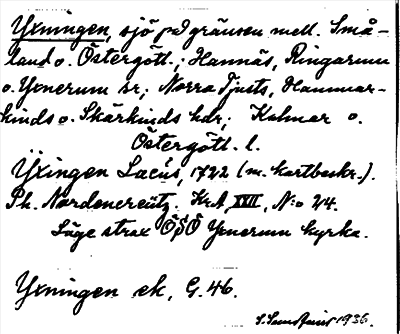 Yxningen, sjö på gränsen mell. Små-
land o. Östergötl.; Hannäs, Ringarum
o. Yxnerum sr; Norra Tjusts, Hammar-
kinds o. Skärkinds hdr; Kalmar o.
Östergötl. l.
Yxingen Lacus, 1722 (m. kartbeskr.).
Ph. Nordencreütz. KrA, XVII, N:o 24.
Läge strax ÖSÖ Yxnerum kyrka.
Yxningen ek, G. 46.
1936.